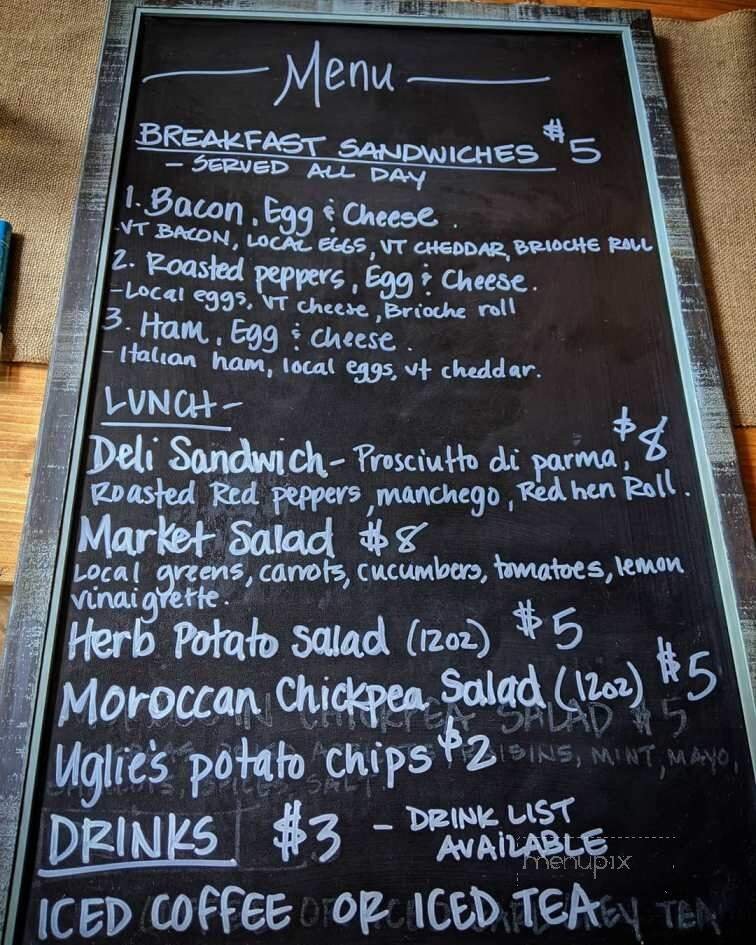 Menu
BREAKFAST SANDWICHES $5
- SERVED ALL DAY
1. Bacon, Egg & Cheese.
-VT BACON, LOCAL EGGS, VT CHEDDAR, BRIOCHE ROLL
2. Roasted peppers, Egg & Cheese.
-Local eggs, VT cheese, Brioche roll
3. Ham, Egg & Cheese.
-Italian ham, local eggs, vt cheddar.
LUNCH-
Deli Sandwich- Prosciutto di parma, $8
Roasted Red peppers, manchego, Red hen Roll.
Market Salad $8
Local greens, carrots, cucumbers, tomatoes, lemon
vinaigrette.
Herb Potato Salad (12oz) $5
Moroccan Chickpea Salad (12oz) $5
CHICKPEA SALAD $5
Uglie's potato chips $2
RAISINS, MINT, MAYO,
SPICES, SALT
DRINKS $3 - DRINK LIST
AVAILABLE
menupix
ICED COFFEE OR ICED TEA
GREY TEA